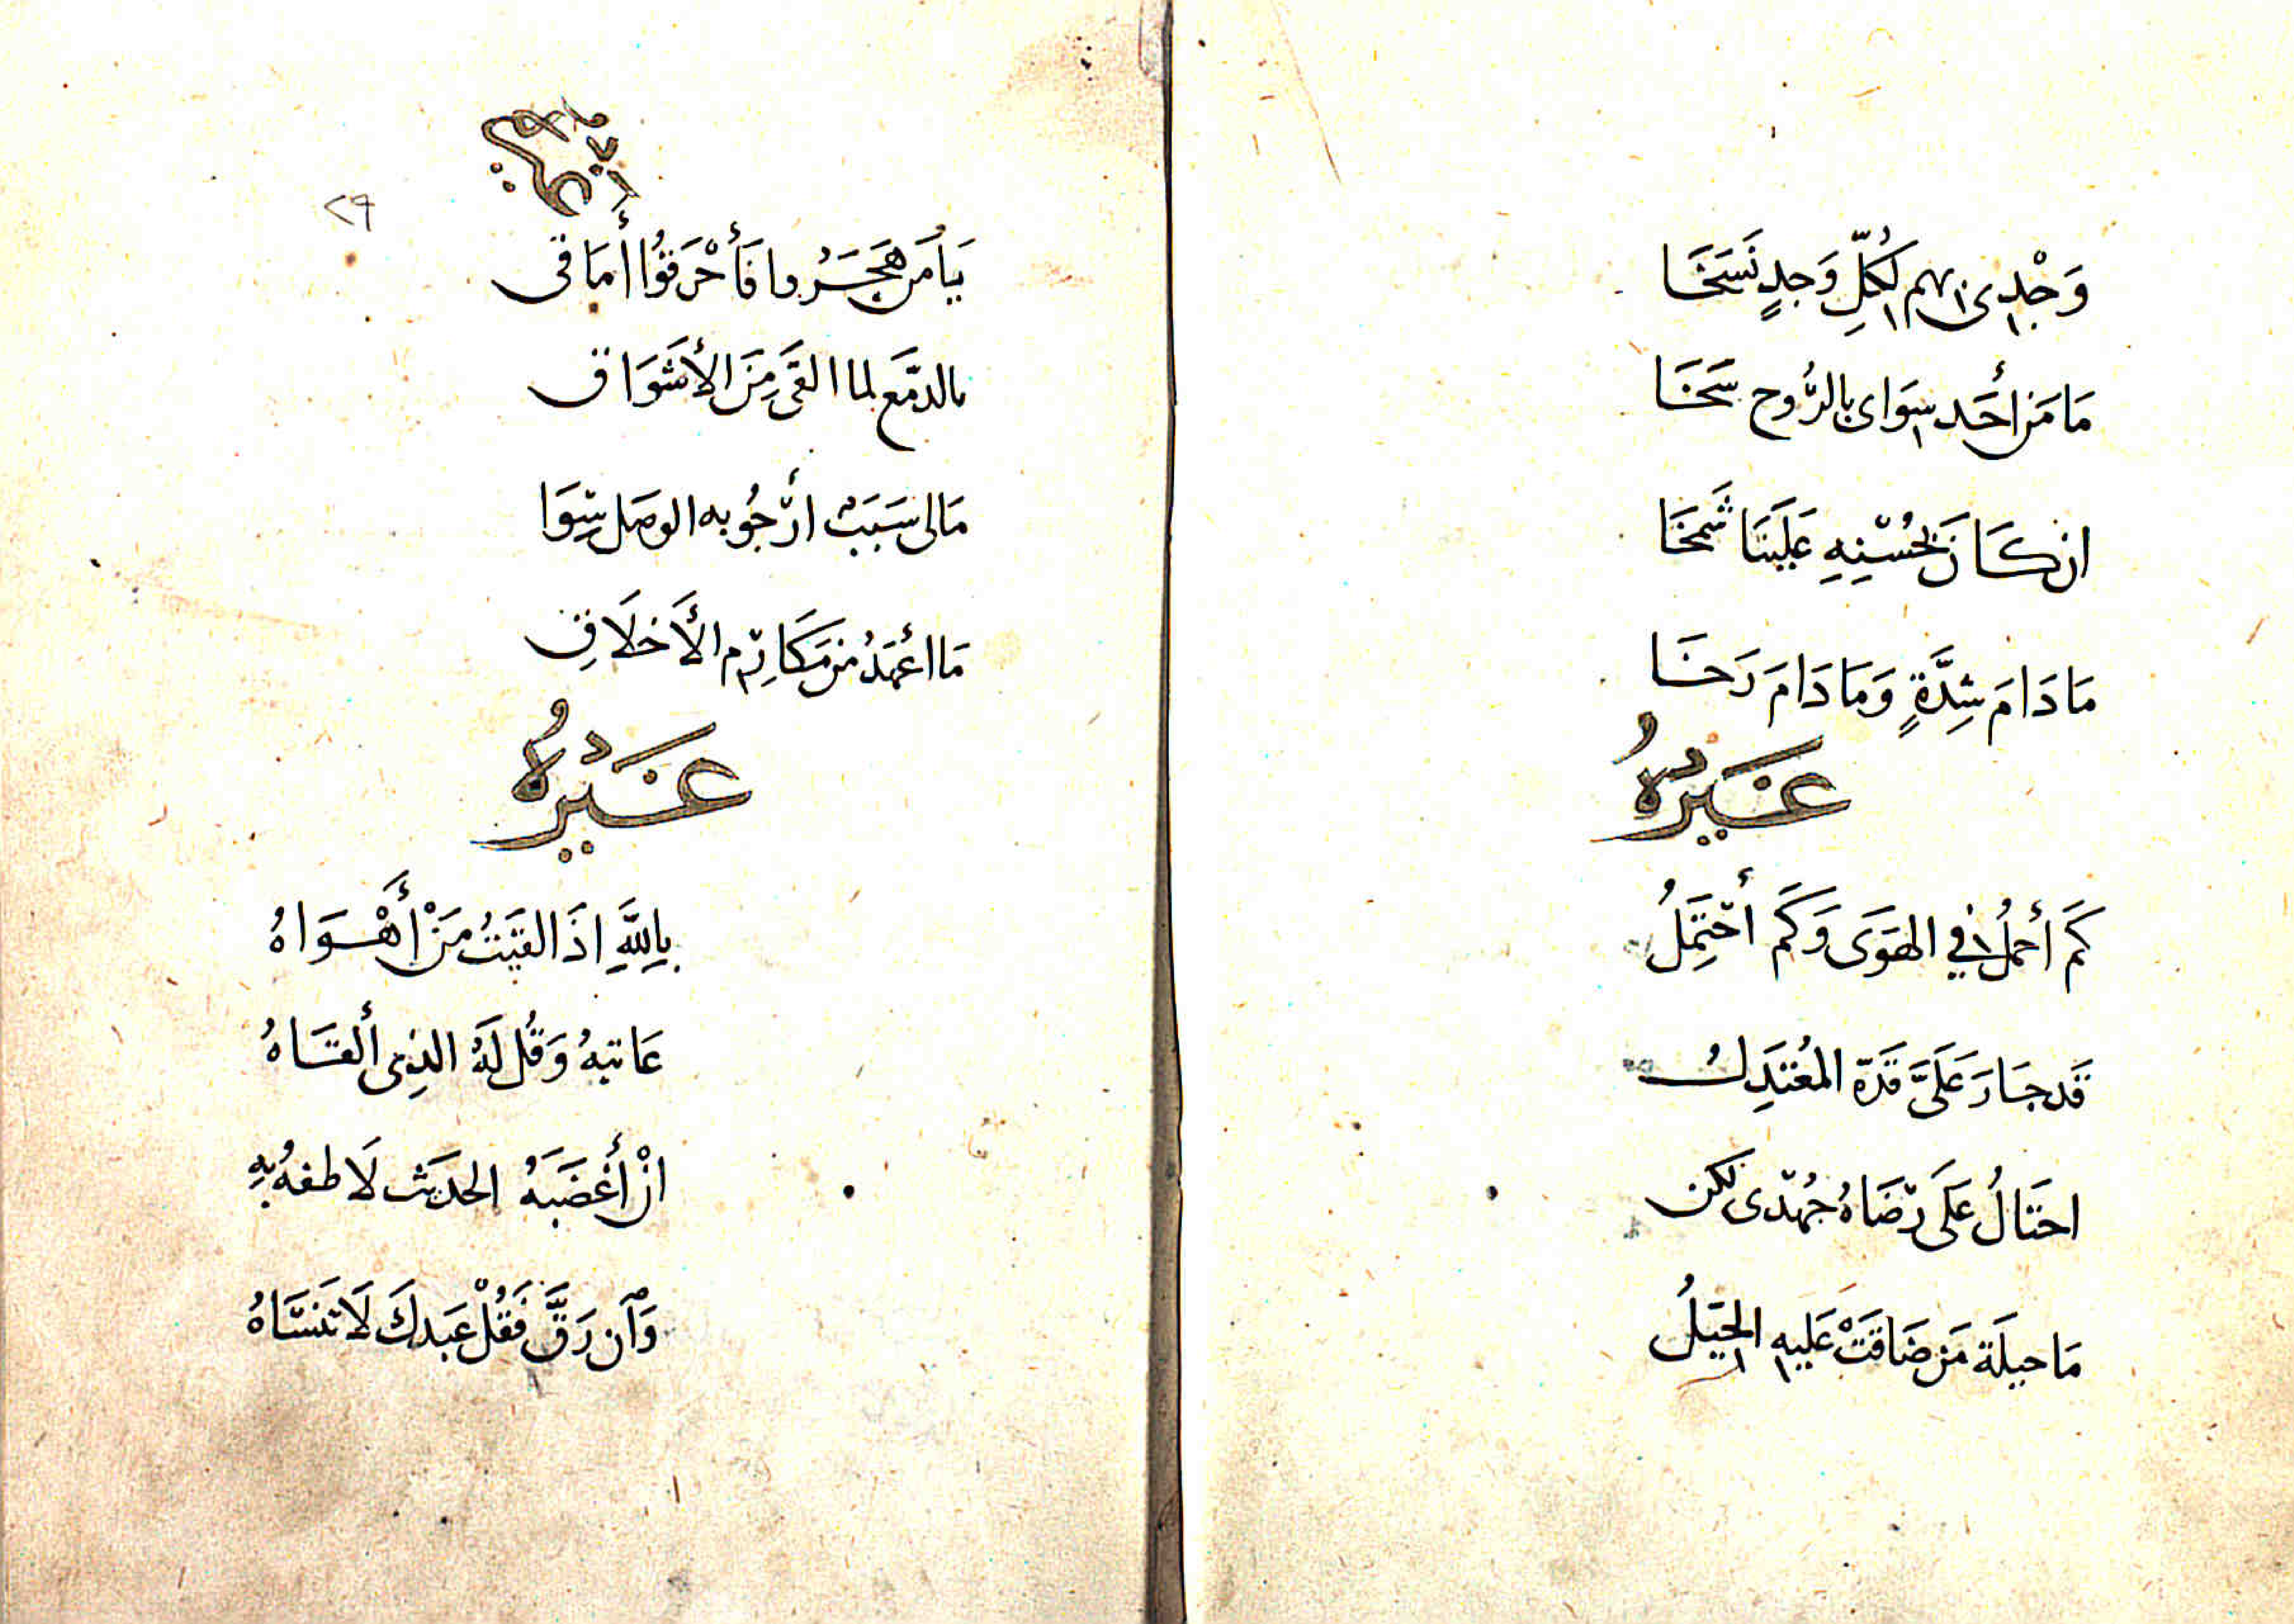 وَجْدِى بهم لكُلِّ وَجدٍ نَسَخَا
مَا مَن أحَد سِوَاى بالرُّوح سَخَا
ان كَانَ لحُسْنِهِ عَلَينَا شَمَخَا
مَا دَامَ شِدَّةٍ وَمَا دَامَ رَخَا
غَيْرُهُ
كَم أحملُ في الهَوَى وَكَم أحْتَمِلُ
قَد جَارَ عَلَىَّ قَدّه المُعْتَدِلُ
احتَالُ عَلَى رِضَاهُ جُهْدى لكن
مَا حيلَة مَن ضَاقَتْ عَليهِ الحِيَلُ
غَيْرُهُ
٢٩
يَا مَن هَجَرُوا فَأَحْرَقُوا أمَاقى
بالدمَع لما القَى مِنَ الأشَوَاق
مَالى سَبَبٌ ارْجُو به الوصَل سِوَا
مَا اعْهَدُ من مَكَارِم الأَخلَاقِ
غَيْرُهُ
بِاللَّهِ اذَا لقيَتُ مَنْ أَهْوَاهُ
عَاتبهُ وَقُل لَهُ الذِى ألقَاهُ
انْ أَغْضَبَهُ الحديَث لَاطفهُ بِهِ
وَان رَقَّ فَقُلْ عَبدكَ لَا تَنسَاهُ